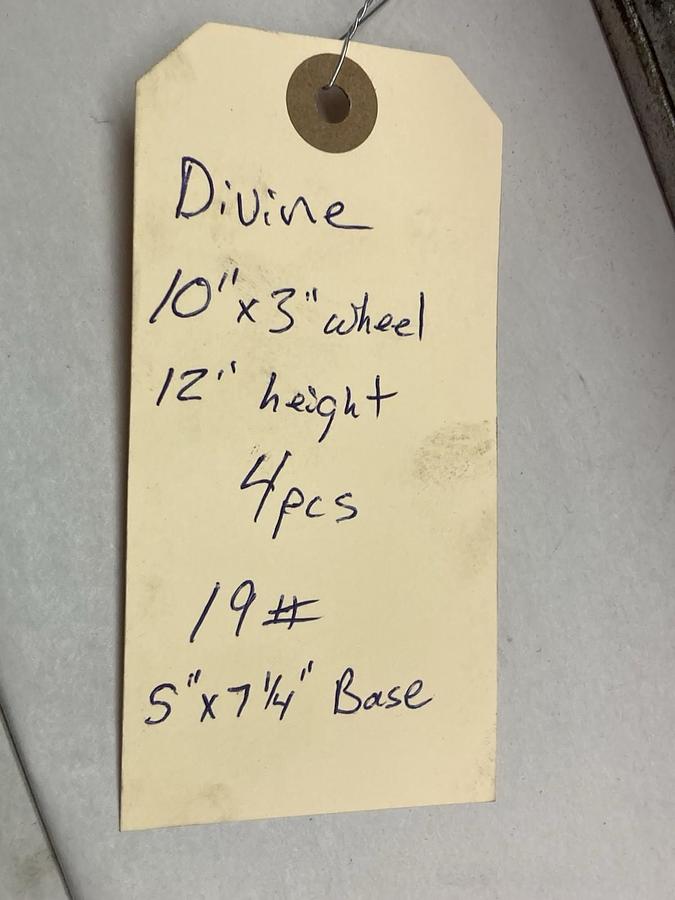 Divine
10" x 3" wheel
12" height
4pcs
19#
5" x 7 1/4" Base